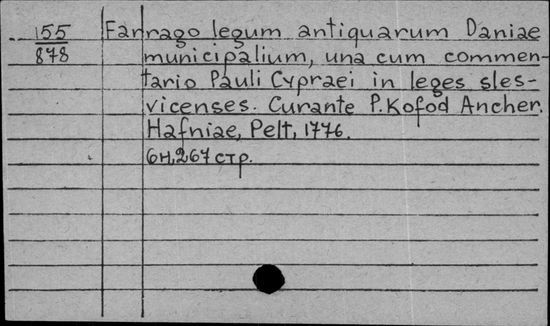 155 Farrago legum antiquarum Daniae
878 municipalium, una cum commen-
tario Pauli Cypraei in leges sles-
vicenses. Curante P. Kofod Ancher.
Hafniae, Pelt, 1776.
6н, 267 стр.